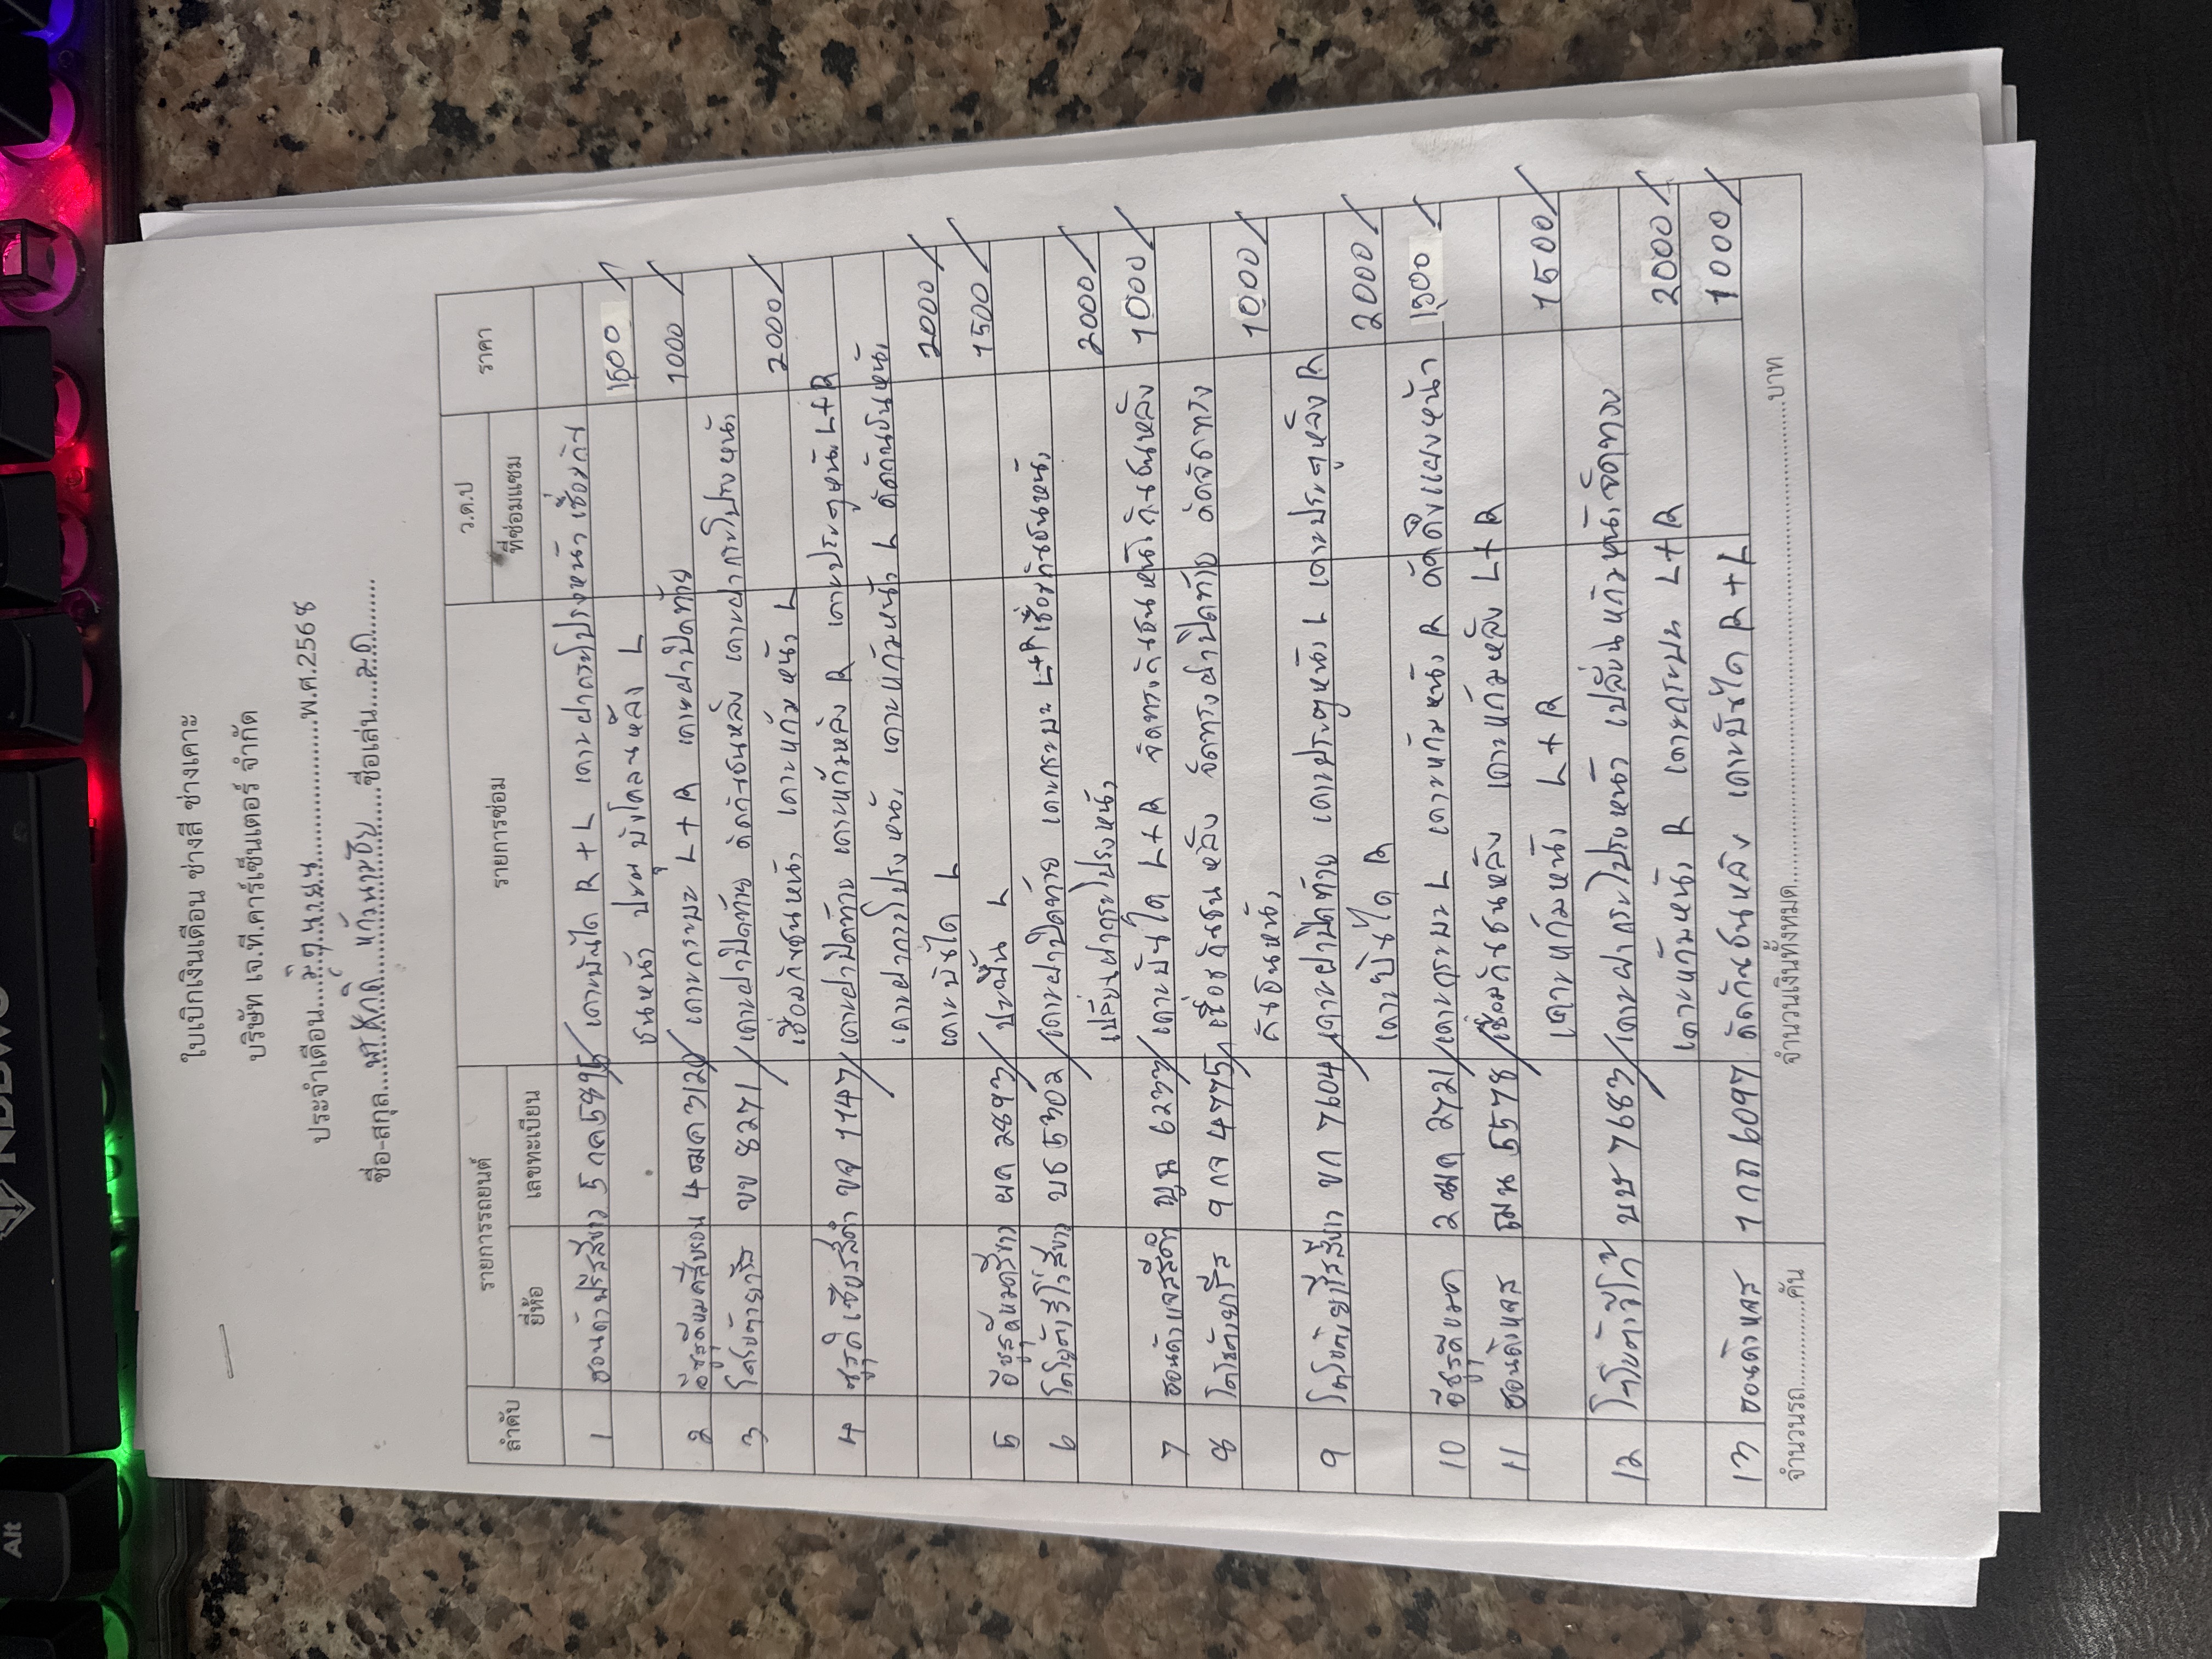 ใบเบิกเงินเดือน ช่างสี ช่างเคาะ
บริษัท เจ.ที.คาร์เซ็นเตอร์ จำกัด
ประจำเดือน...มิถุนายน...พ.ศ.2568
ชื่อ-สกุล... ...ชื่อเล่น...มด...
ลำดับ รายการรถยนต์ รายการซ่อม ว.ด.ป ราคา
ยี่ห้อ เลขทะเบียน ที่ซ่อมแซม
1 ฮอนด้าฟรีสสีขาว 5 กค 5895 เคาะบันได R + L เคาะฝากระโปรงหน้า เชื่อมกัน
ชนหน้า ปะผุ บังโคลนหลัง L 1500
2 อีซูซุดีแมคสีบรอน 4ฒค 3120 เคาะกระบะ L + R เคาะฝาปิดท้าย 1000
3 โตโยต้ายาริส ขข 8271 เคาะฝาปิดท้าย ดัดกันชนหลัง เคาะฝากระโปรงหน้า
เชื่อมกันชนหน้า เคาะแก้มหน้า L 2000
4 ซูซูกิเซียสสีดำ ขจ 1147 เคาะฝาปิดท้าย เคาะแก้มหลัง R เคาะประตูหน้า L+R
เคาะฝากระโปรงหน้า เคาะแก้มหน้า L ดัดกันชนหน้า
เคาะบันได L 2000
5 อีซูซุดีแมคสีขาว ผค 2893 ปะพื้น L 1500
6 โตโยต้ารีโว่สีขาว บธ 5302 เคาะฝาปิดท้าย เคาะกระบะ L+R เชื่อมกันชนหน้า
เปลี่ยนฝากระโปรงหน้า 2000
7 ฮอนด้าแจสสีดำ 6233 เคาะบันได L+R จัดทรงกันชนหน้า กันชนหลัง 1000
8 โตโยต้ายาริส 9 กจ 4775 เชื่อมกันชนหลัง จัดทรงฝาปิดท้าย ดัดจัดทรง
กันชนหน้า 1000
9 โตโยต้ายาริสสีขาว ขก 7604 เคาะฝาปิดท้าย เคาะประตูหน้า L เคาะประตูหลัง R
เคาะบันได R 2000
10 อีซูซุดีแมค 2ฒถ 2721 เคาะกระบะ L เคาะแก้มหน้า R ดัดดึงแผงหน้า 1500
11 ฮอนด้าแจส ฌน 5578 เชื่อมกันชนหลัง เคาะแก้มหลัง L+R
เคาะแก้มหน้า L + R 1500
12 โตโยต้าวีโก้ บษ 7683 เคาะฝากระโปรงหน้า เปลี่ยนแก้มหน้า จัดทรง
เคาะแก้มหน้า R เคาะกระบะ L+R 2000
13 ฮอนด้าแจส 1 กถ 6097 ดัดกันชนหลัง เคาะบันได R + L 1000
จำนวนรถ............คัน จำนวนเงินทั้งหมด............บาท
Alt